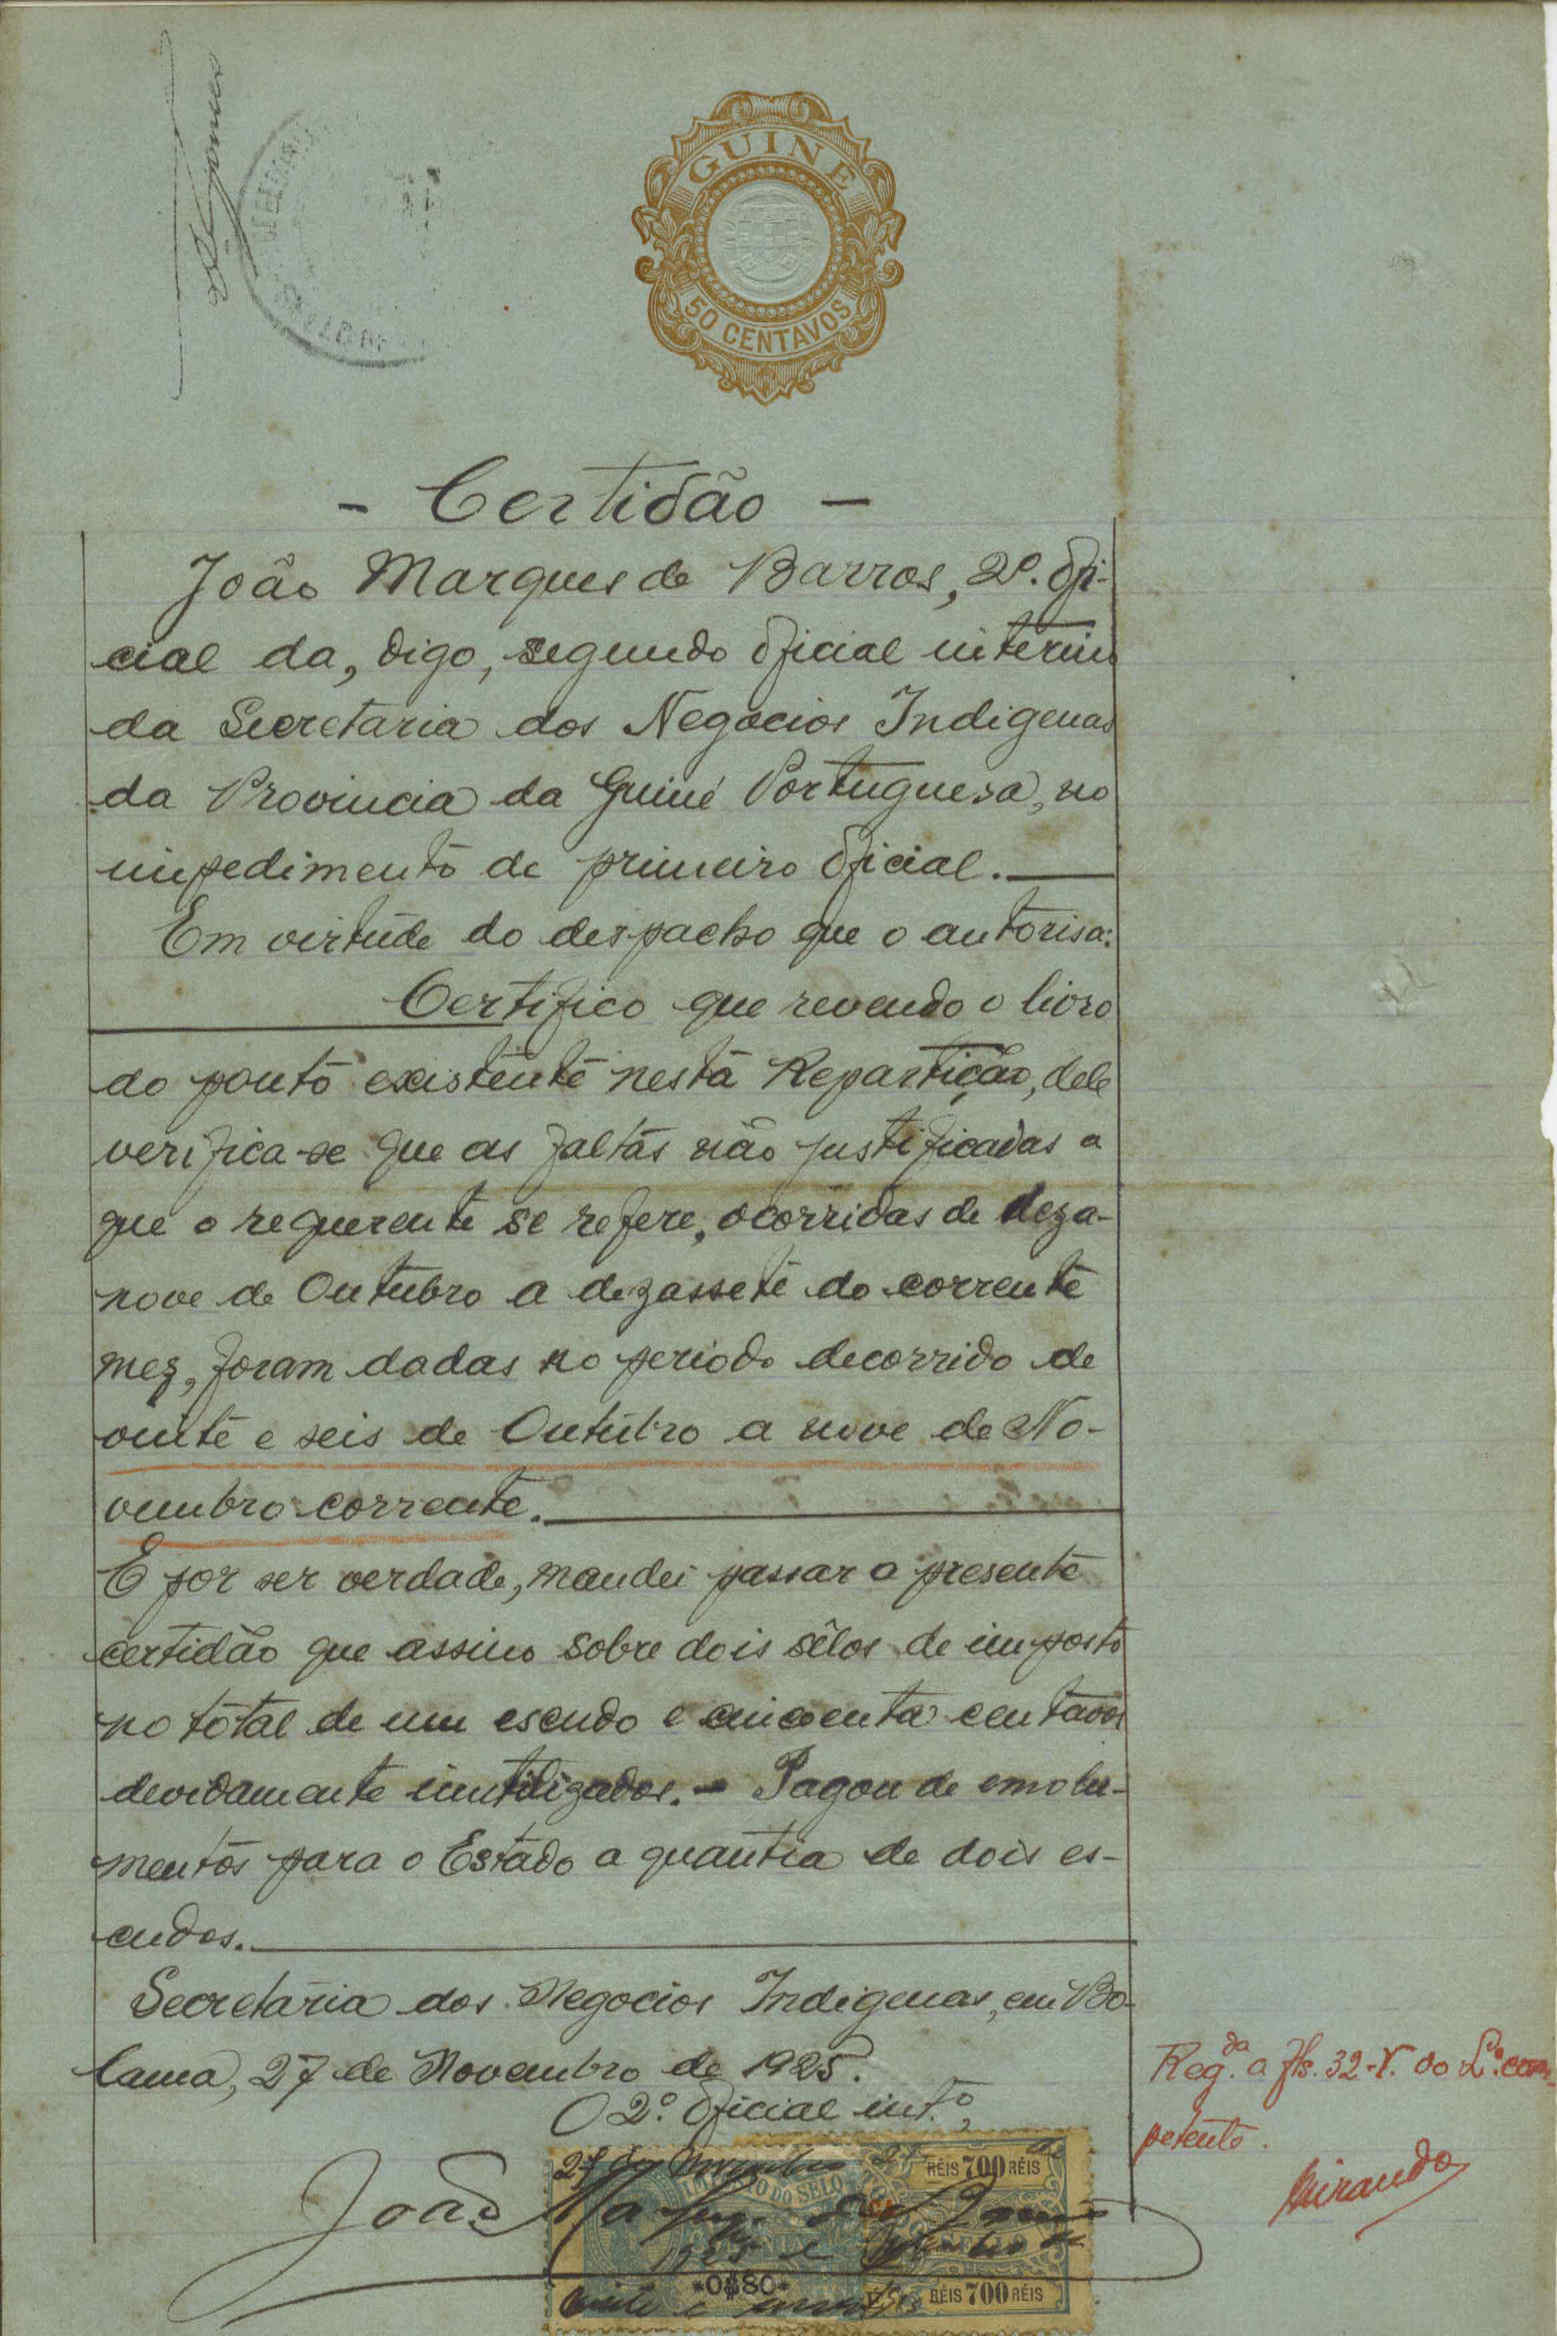 GUINÉ
50 CENTAVOS
- Certidão -
João Marques de Barros, 2º. ofi-
cial da, digo, segundo oficial interino
da Secretaria dos Negocios Indigenas
da Provincia da Guiné Portuguesa, no
impedimento de primeiro oficial.
Em virtude do despacho que o autorisa:
Certifico que revendo o livro
do ponto existente nesta Repartição, dele
verifica-se que as faltas não justificadas a
que o requerente se refere, ocorridas de deza-
nove de Outubro a dezassete do corrente
mez, foram dadas no periodo decorrido de
vinte e seis de Outubro a nove de No-
vembro corrente.
E por ser verdade, mandei passar a presente
certidão que assino sobre dois sêlos de imposto
no total de um escudo e cincoenta centavos
devidamente inutilizados. - Pagou de emolu-
mentos para o Estado a quantia de dois es-
cudos.
Secretaria dos Negocios Indigenas, em Bo-
lama, 27 de Novembro de 1925.
O 2º. Oficial int.º,
27 de Novembro
RÉIS 700 RÉIS
IMPOSTO DO SELO
João Marques de Barros
1925
0$80
RÉIS 700 RÉIS
Reg.da a fls. 32-V. do L.º com-
petente.
Miranda